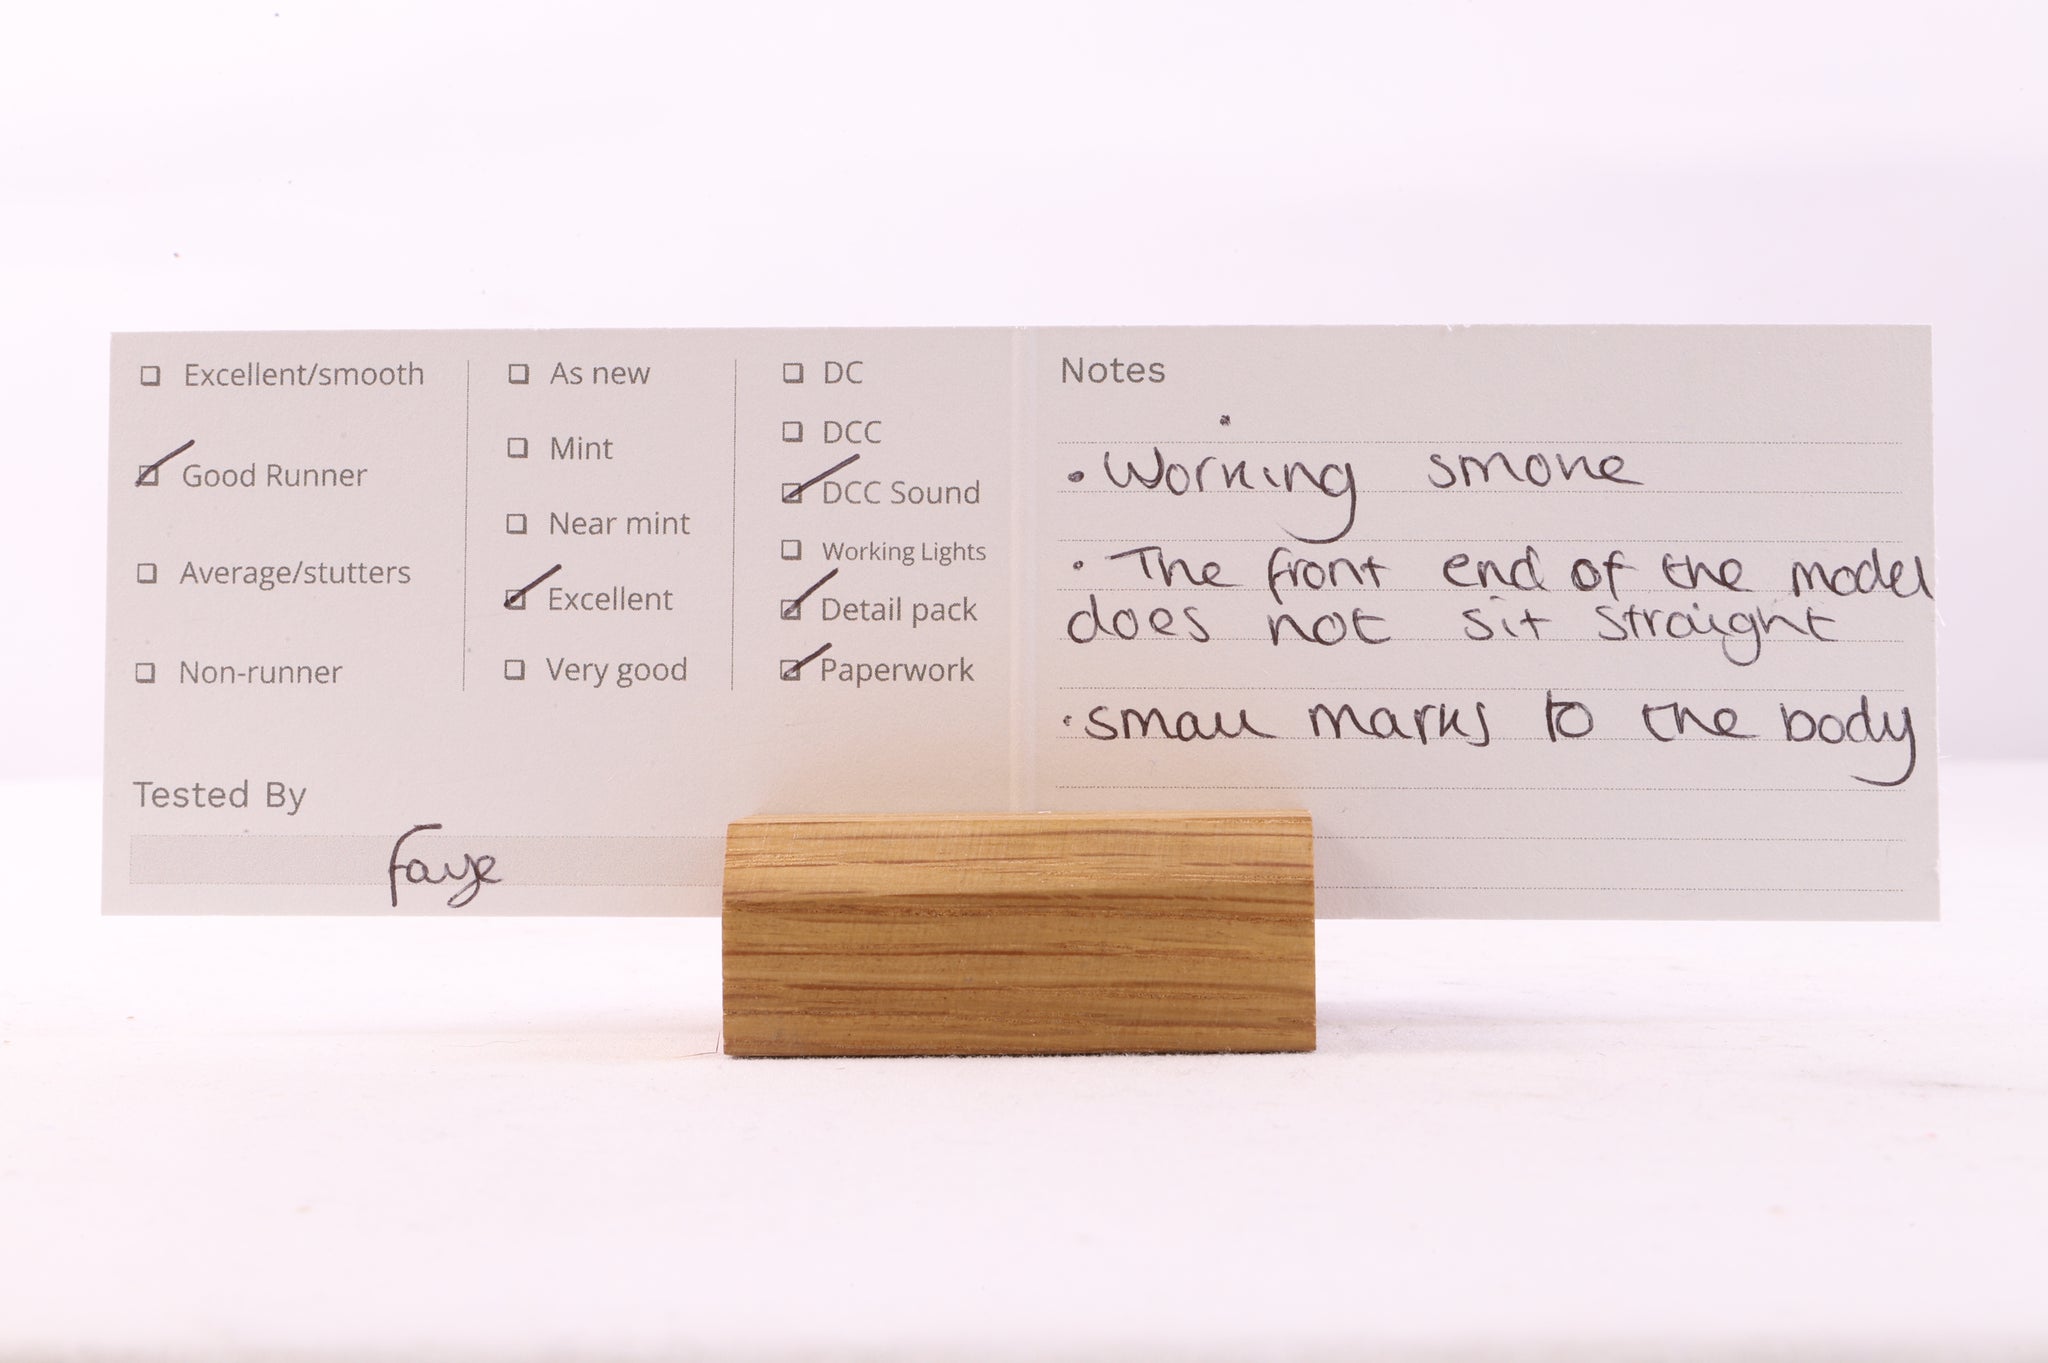 Excellent/smooth
Good Runner
Average/stutters
Non-runner
As new
Mint
Near mint
Excellent
Very good
DC
DCC
DCC Sound
Working Lights
Detail pack
Paperwork
Tested By
Faye
Notes
• Working smoke
• The front end of the model
does not sit straight
• small marks to the body